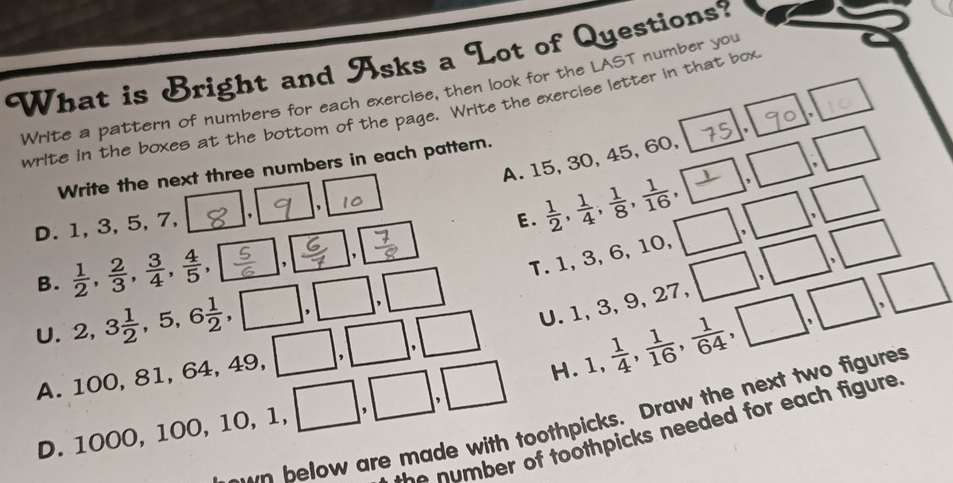 What is Bright and Asks a Lot of Questions?
Write a pattern of numbers for each exercise, then look for the LAST number you
write in the boxes at the bottom of the page. Write the exercise letter in that box.
Write the next three numbers in each pattern.
D. 1, 3, 5, 7, 8, 9, 10
B. 1/2, 2/3, 3/4, 4/5, 5/6, 6/7, 7/8
U. 2, 3 1/2, 5, 6 1/2,
A. 100, 81, 64, 49,
D. 1000, 100, 10, 1,
A. 15, 30, 45, 60, 75, 90, 10
E. 1/2, 1/4, 1/8, 1/16, 1
T. 1, 3, 6, 10,
U. 1, 3, 9, 27,
H. 1, 1/4, 1/16, 1/64,
below are made with toothpicks. Draw the next two figures
the number of toothpicks needed for each figure.